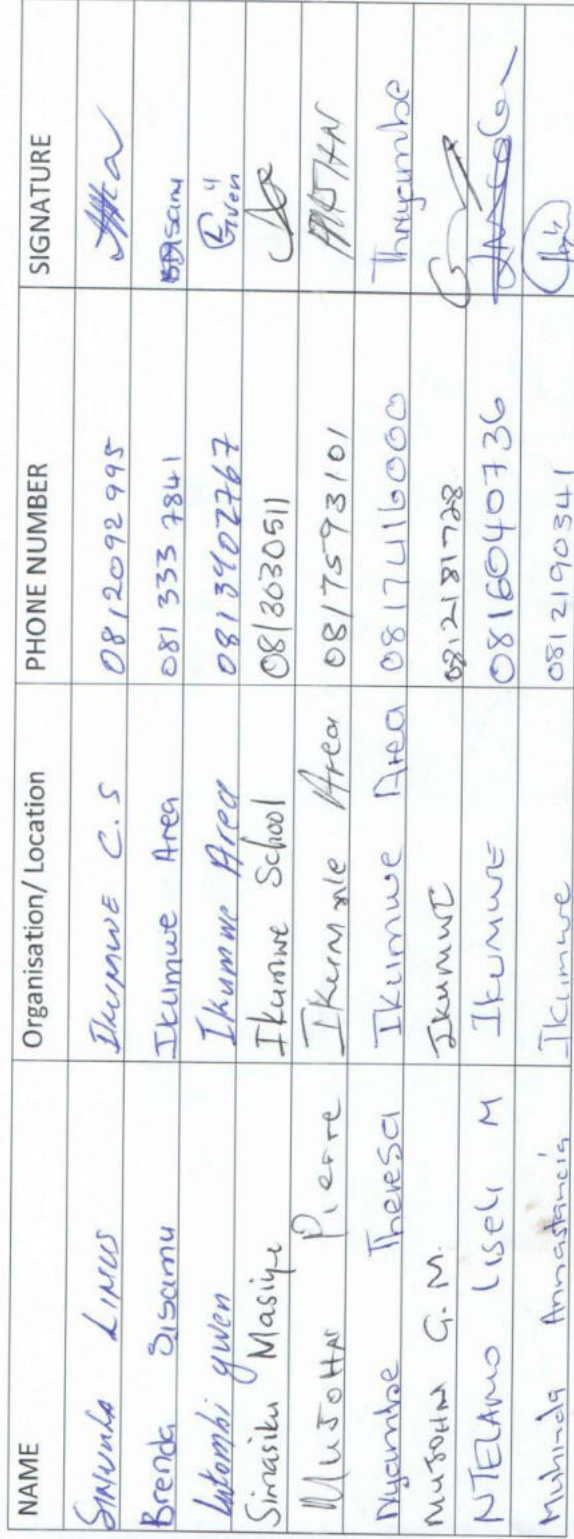 NAME Organisation/ Location PHONE NUMBER SIGNATURE
SINVULA LINUS IKUMWE C.S 0812092995
Brenda Sisamu Ikumwe Area 081 333 7841 BSisamu
Lutombi gwen Ikumwe Area 0813902767 Gwen
Simasiku Masiye Ikumwe School 0813030511
MUJOHN Pierre Ikumwe Area 0817593101
Nyambe Theresa Ikumwe Area 0817416000 Thnyambe
MUJOHN G. M. IKUMWE 0812181728
NTELAMO Liseli M IKUMWE 0816040736
Muhinda Annastancia Ikumwe 0812190341